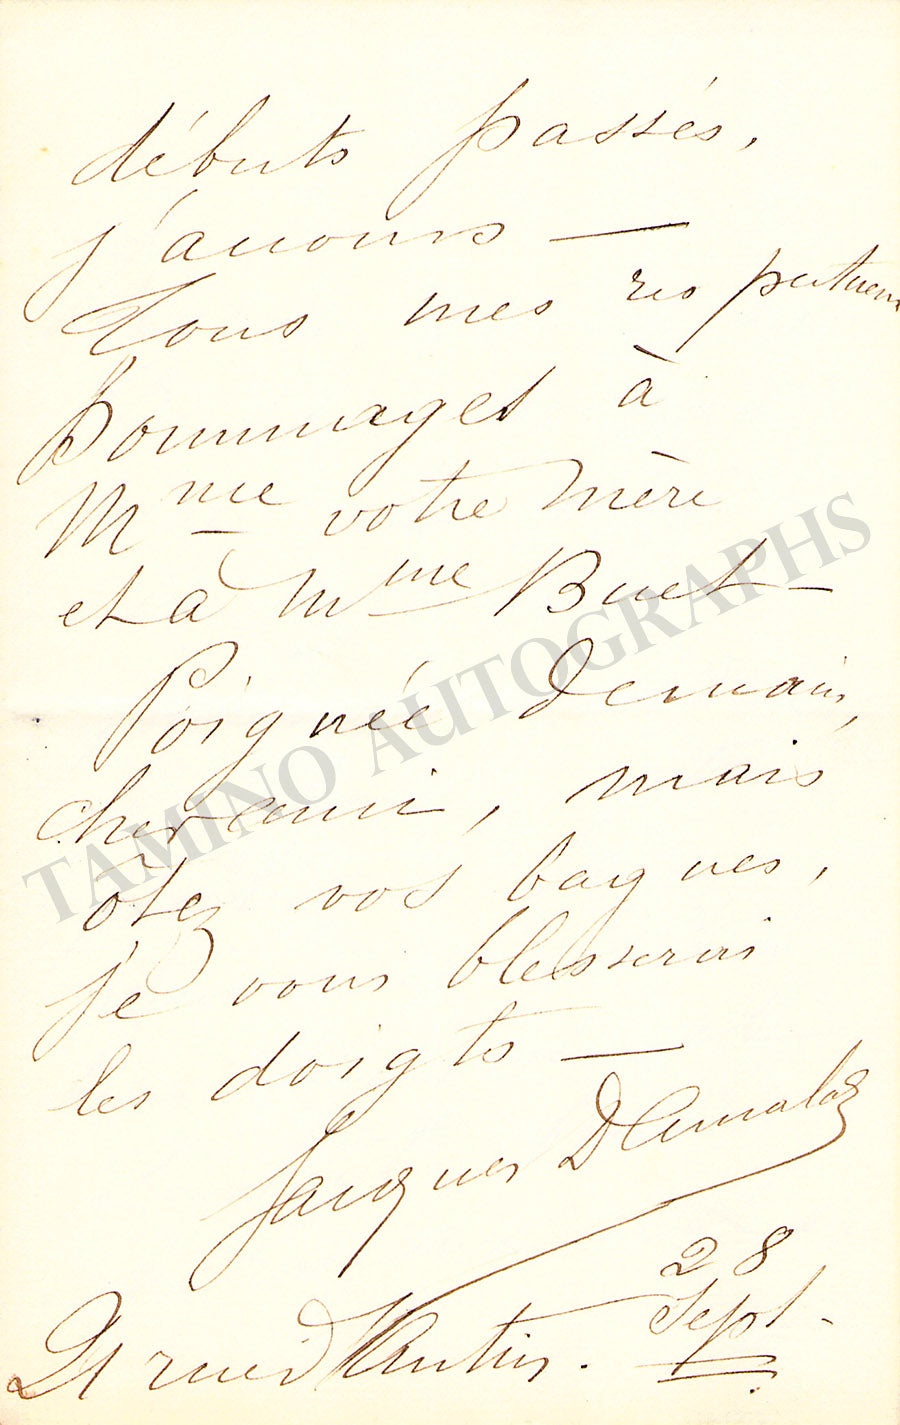 débuts passés,
j'accours —
Tous mes respectueux
hommages à
Mme votre mère
et à Mme Buet —
Poignée de mains,
cher ami, mais
ôtez vos bagues,
je vous blesserais
les doigts —
Jacques Damala
28
21 rue d'Antin. Sept.
TAMINO AUTOGRAPHS